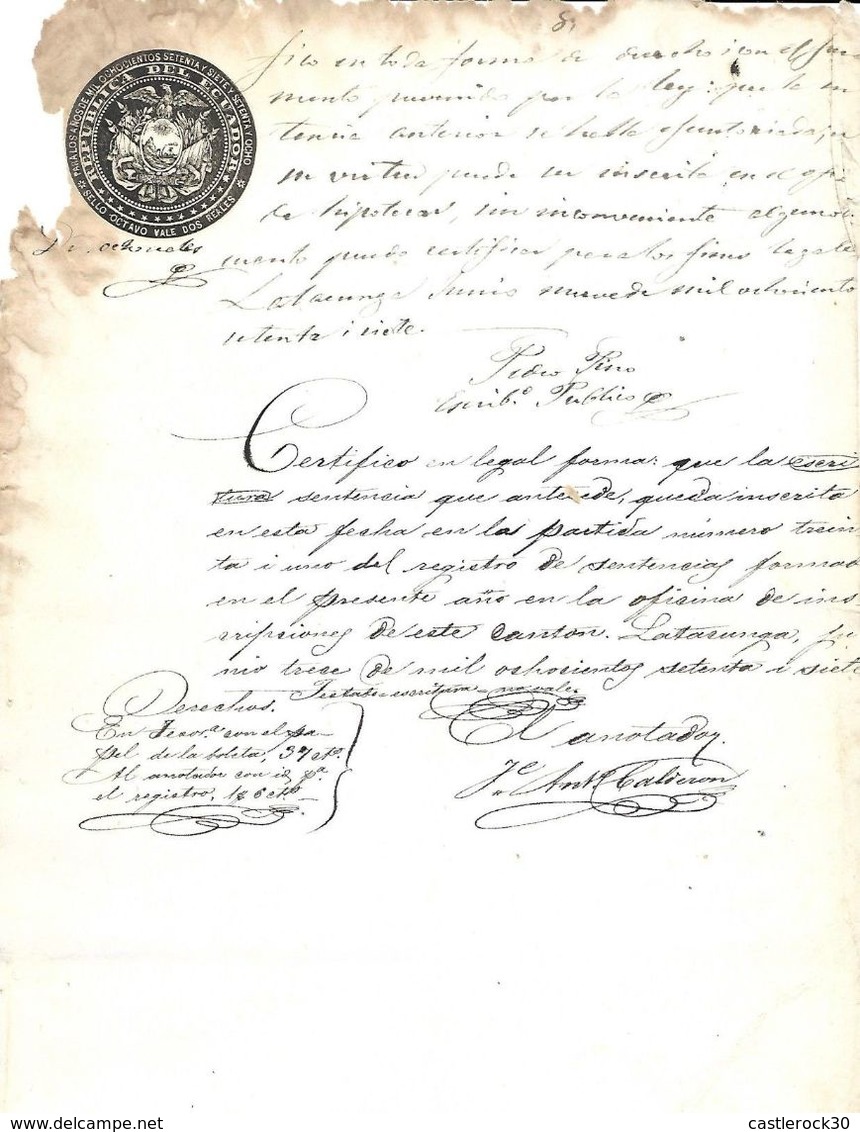 8
PARA LOS AÑOS DE MIL OCHOCIENTOS SETENTA Y SIETE Y SETENTA Y OCHO
REPUBLICA DEL ECUADOR
SELLO OCTAVO VALE DOS REALES
fico en toda forma de derecho i con el jura
mento prevenido por la ley: que la sen
tencia anterior se halla ejecutoriada, i en
su virtud puede ser inscrita en el ofi
de hipotecas, sin inconveniente alguno.
mento puedo certificar para los fines legales
Latacunga Junio nueve de mil ochociento
setenta i siete.
Pedro Pino
Escrib.º Publico
Certifico en legal forma: que la escri
tura sentencia que antecede, queda inscrita
en esta fecha en la partida número trein
ta i uno del registro de sentencias formado
en el presente año en la oficina de ins
cripsiones de este Canton. Latacunga, ju
nio trece de mil ochosientos setenta i siete
Testado=escritura=no vale.
El anotador.
J.e Ant.º Calderon
Derechos.
En Tesor.ª con el pa-
pel de la boleta, 37 ct.s
Al anotador con id p.ª
el registro,
castlerock30